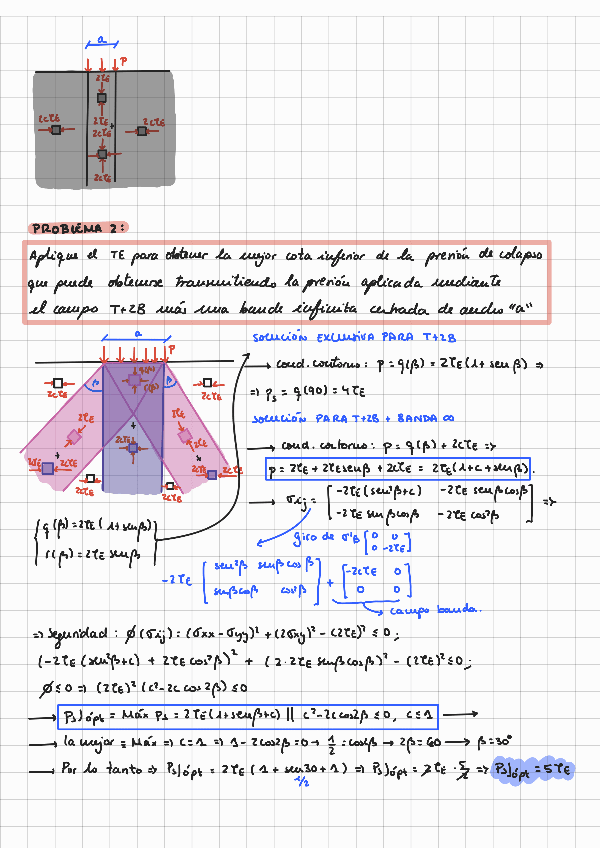 a
P
2τE
2cτE
2τE
2cτE
2cτE
2τE
PROBLEMA 2:
Aplique el TE para obtener la mejor cota inferior de la presión de colapso
que puede obtenerse transmitiendo la presión aplicada mediante
el campo T+2B más una banda infinita centrada de ancho "a"
a
P
β
q(β)
r(β)
β
2cτE
2cτE
2τE
2τE
2cτE
2cτE
2cτE
SOLUCIÓN EXCLUSIVA PARA T+2B
cond. contorno: p = q(β) = 2τE(1+sen β) ⇒
⇒ Ps = q(90) = 4τE
SOLUCIÓN PARA T+2B + BANDA ∞
cond. contorno: p = q(β) + 2cτE ⇒
p = 2τE + 2τE senβ + 2cτE = 2τE(1+c+senβ).
σij = [-2τE(sen²β+c) -2τE senβcosβ
-2τE senβcosβ -2τE cos²β] ⇒
{q(β) = 2τE(1+senβ)
r(β) = 2τE senβ}
giro de σ'B [0 0
0 -2τE]
-2τE [sen²β senβcosβ
senβcosβ cos²β] + [-2cτE 0
0 0]
campo banda.
⇒ Seguridad: ∅(σij) = (σxx - σyy)² + (2σxy)² - (2τE)² ≤ 0;
(-2τE (sen²β+c) + 2τE cos²β)² + (2·2τE senβcosβ)² - (2τE)² ≤ 0;
∅ ≤ 0 ⇒ (2τE)² (c² - 2c cos2β) ≤ 0
→ Ps]ópt = Máx Ps = 2τE(1+senβ+c) || c² - 2c cos2β ≤ 0, c ≤ 1 →
→ la mejor = Máx ⇒ c=1 ⇒ 1 - 2cos2β = 0 → 1/2 = cos2β → 2β = 60 → β = 30°
→ Por lo tanto ⇒ Ps]ópt = 2τE (1 + sen30 + 1) ⇒ Ps]ópt = 2τE · 5/2 ⇒ Ps]ópt = 5τE
1/2